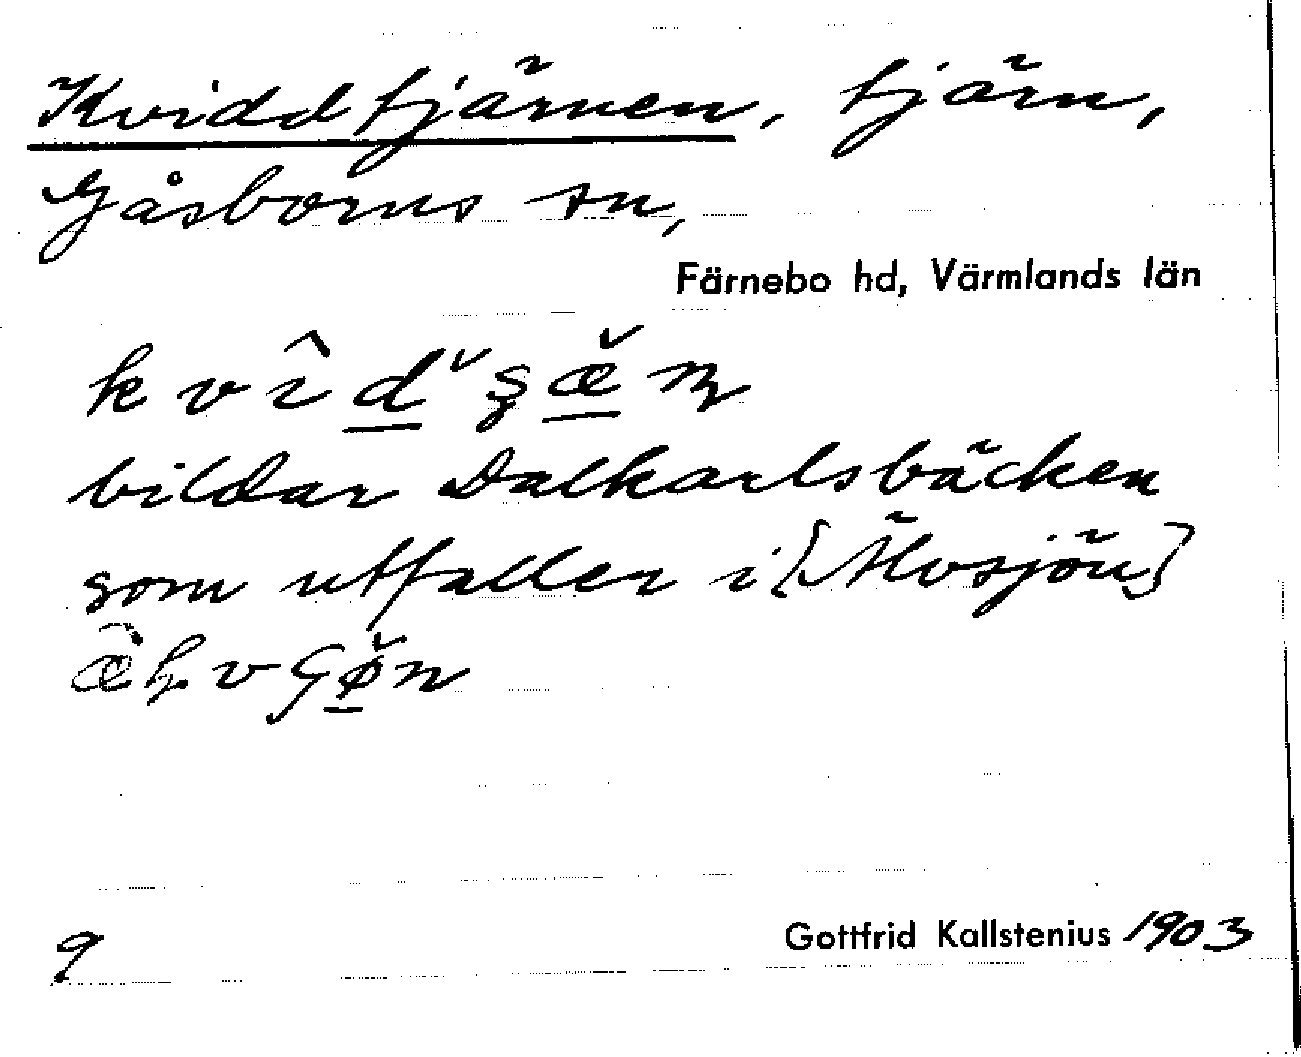 Kviddtjärnen, tjärn,
Gåsborns sn,
Färnebo hd, Värmlands län
bildar Dalkarlsbäcken
som utfaller i [Älvsjön]
9
Gottfrid Kallstenius 1903